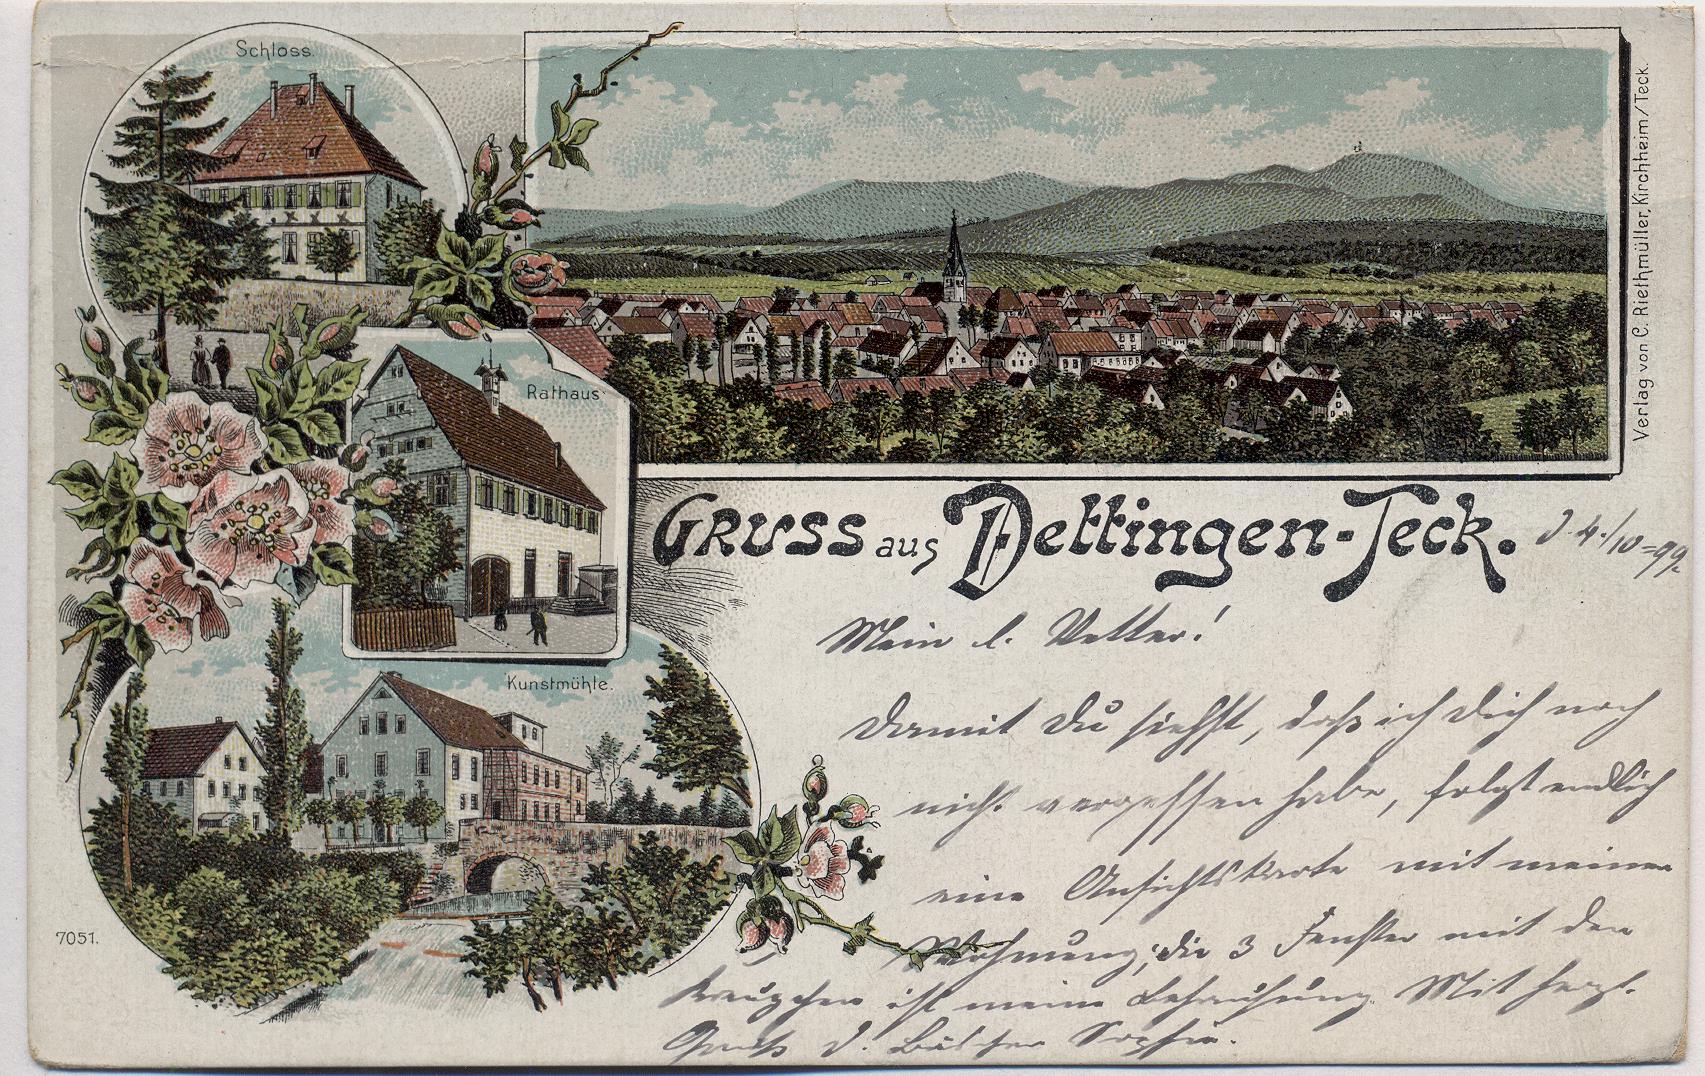 Schloss.
Rathaus
Kunstmühle.
7051.
Verlag von C. Riethmüller, Kirchheim/Teck.
Gruss aus Dettingen-Teck.
d. 4./10=99.
Mein l. Vetter!
Damit Du siehst, daß ich Dich noch
nicht vergessen habe, folgt endlich
eine Ansichtskarte mit meiner
Wohnung; die 3 Fenster mit den
Kreuzchen ist meine Behausung. Mit herzl.
Gruß d. Sophie.